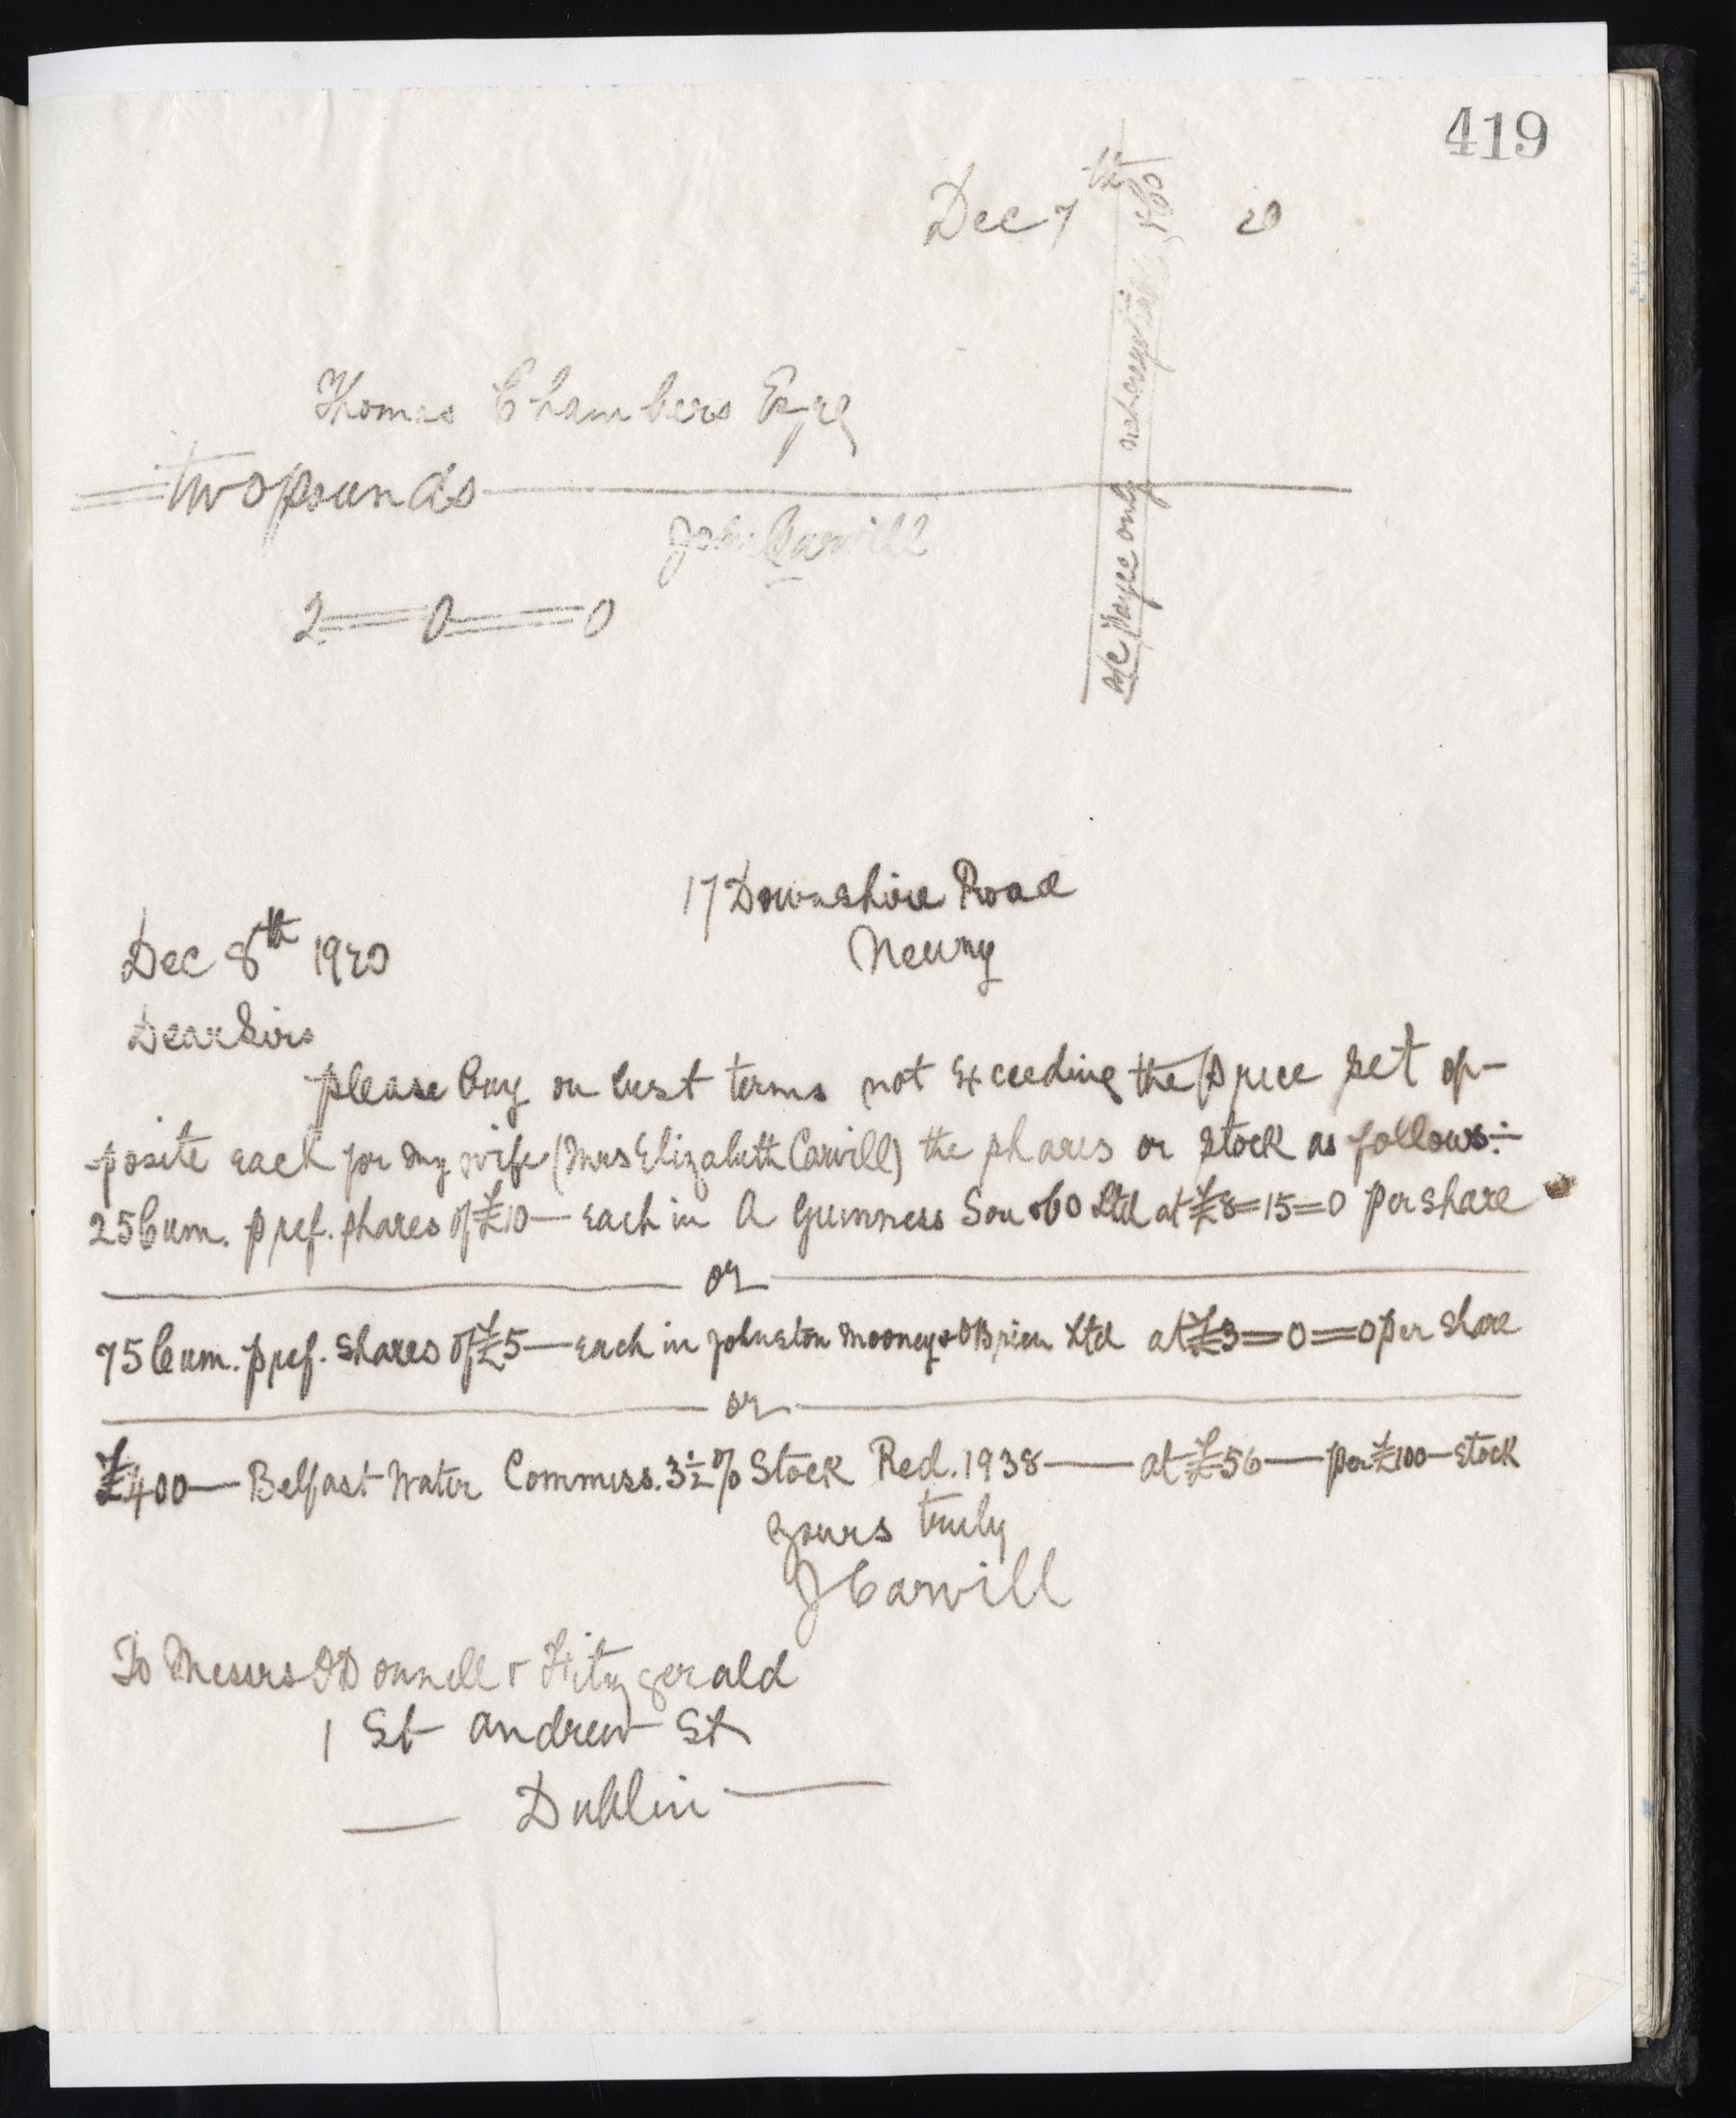 419
Dec 7th 20
Thomas Chambers Esqre
two pounds
John Carvill
2=0=0
a/c Payee only not negotiable & Co
17 Downshire Road
Newry
Dec 8th 1920
Dear Sirs
please buy on best terms not exceeding the price set op-
posite each for my wife (Mrs Elizabeth Carvill) the shares or stock as follows:-
25 Cum. pref. shares of £10— each in A Guinness Son & Co Ltd at £8=15=0 per share
or
75 Cum. pref. shares of £5— each in Johnston Mooney & OBrien Ltd at £3=0=0 per share
or
£400— Belfast Water Commiss. 3½% Stock Red. 1938 — at £56 — per £100— stock
yours truly
J Carvill
To Messrs O'Donnell & Fitzgerald
1 St Andrew St
— Dublin —